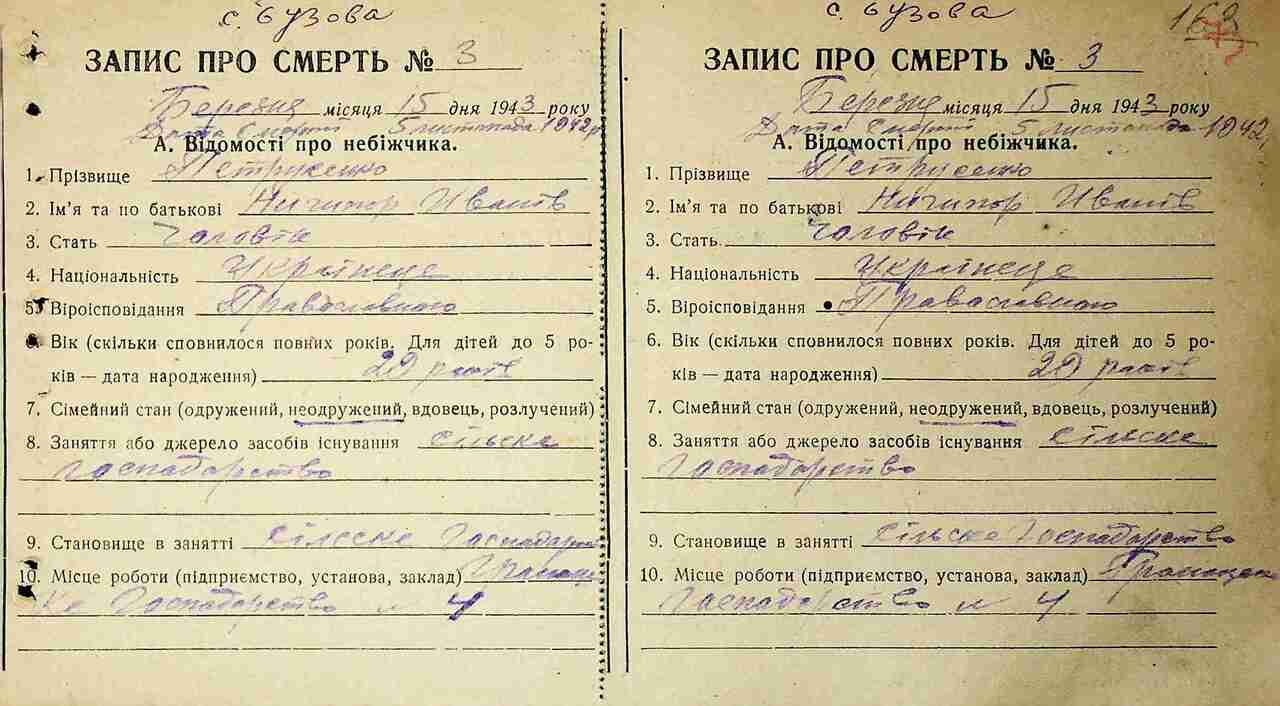 с. Бузова
ЗАПИС ПРО СМЕРТЬ № 3
Березня місяця 15 дня 1943 року
Дата Смерти 5 листопада 1942 р
А. Відомості про небіжчика.
1. Прізвище Петрусенко
2. Ім'я та по батькові Ничипор Иванів
3. Стать Чоловік
4. Національність Українець
5. Віроісповідання Православного
6. Вік (скільки сповнилося повних років. Для дітей до 5 ро-
ків — дата народження) 20 років
7. Сімейний стан (одружений, неодружений, вдовець, розлучений)
8. Заняття або джерело засобів існування сільске
господарство
9. Становище в занятті сільске господарство
10. Місце роботи (підприємство, установа, заклад) Громадс
ке Господарство № 4
с. Бузова
163
ЗАПИС ПРО СМЕРТЬ № 3
Березня місяця 15 дня 1943 року
Дата Смерті 5 листопада 1942
А. Відомості про небіжчика.
1. Прізвище Петрусенко
2. Ім'я та по батькові Ничипор Иванів
3. Стать Чоловік
4. Національність Українець
5. Віроісповідання Православного
6. Вік (скільки сповнилося повних років. Для дітей до 5 ро-
ків — дата народження) 20 років
7. Сімейний стан (одружений, неодружений, вдовець, розлучений)
8. Заняття або джерело засобів існування сільске
господарство
9. Становище в занятті сільске Господарство
10. Місце роботи (підприємство, установа, заклад)
Господарство № 4